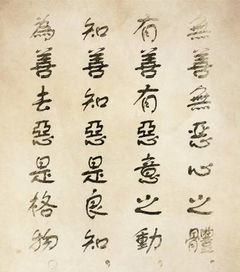 無善無惡心之體,
有善有惡意之動,
知善知惡是良知,
為善去惡是格物。